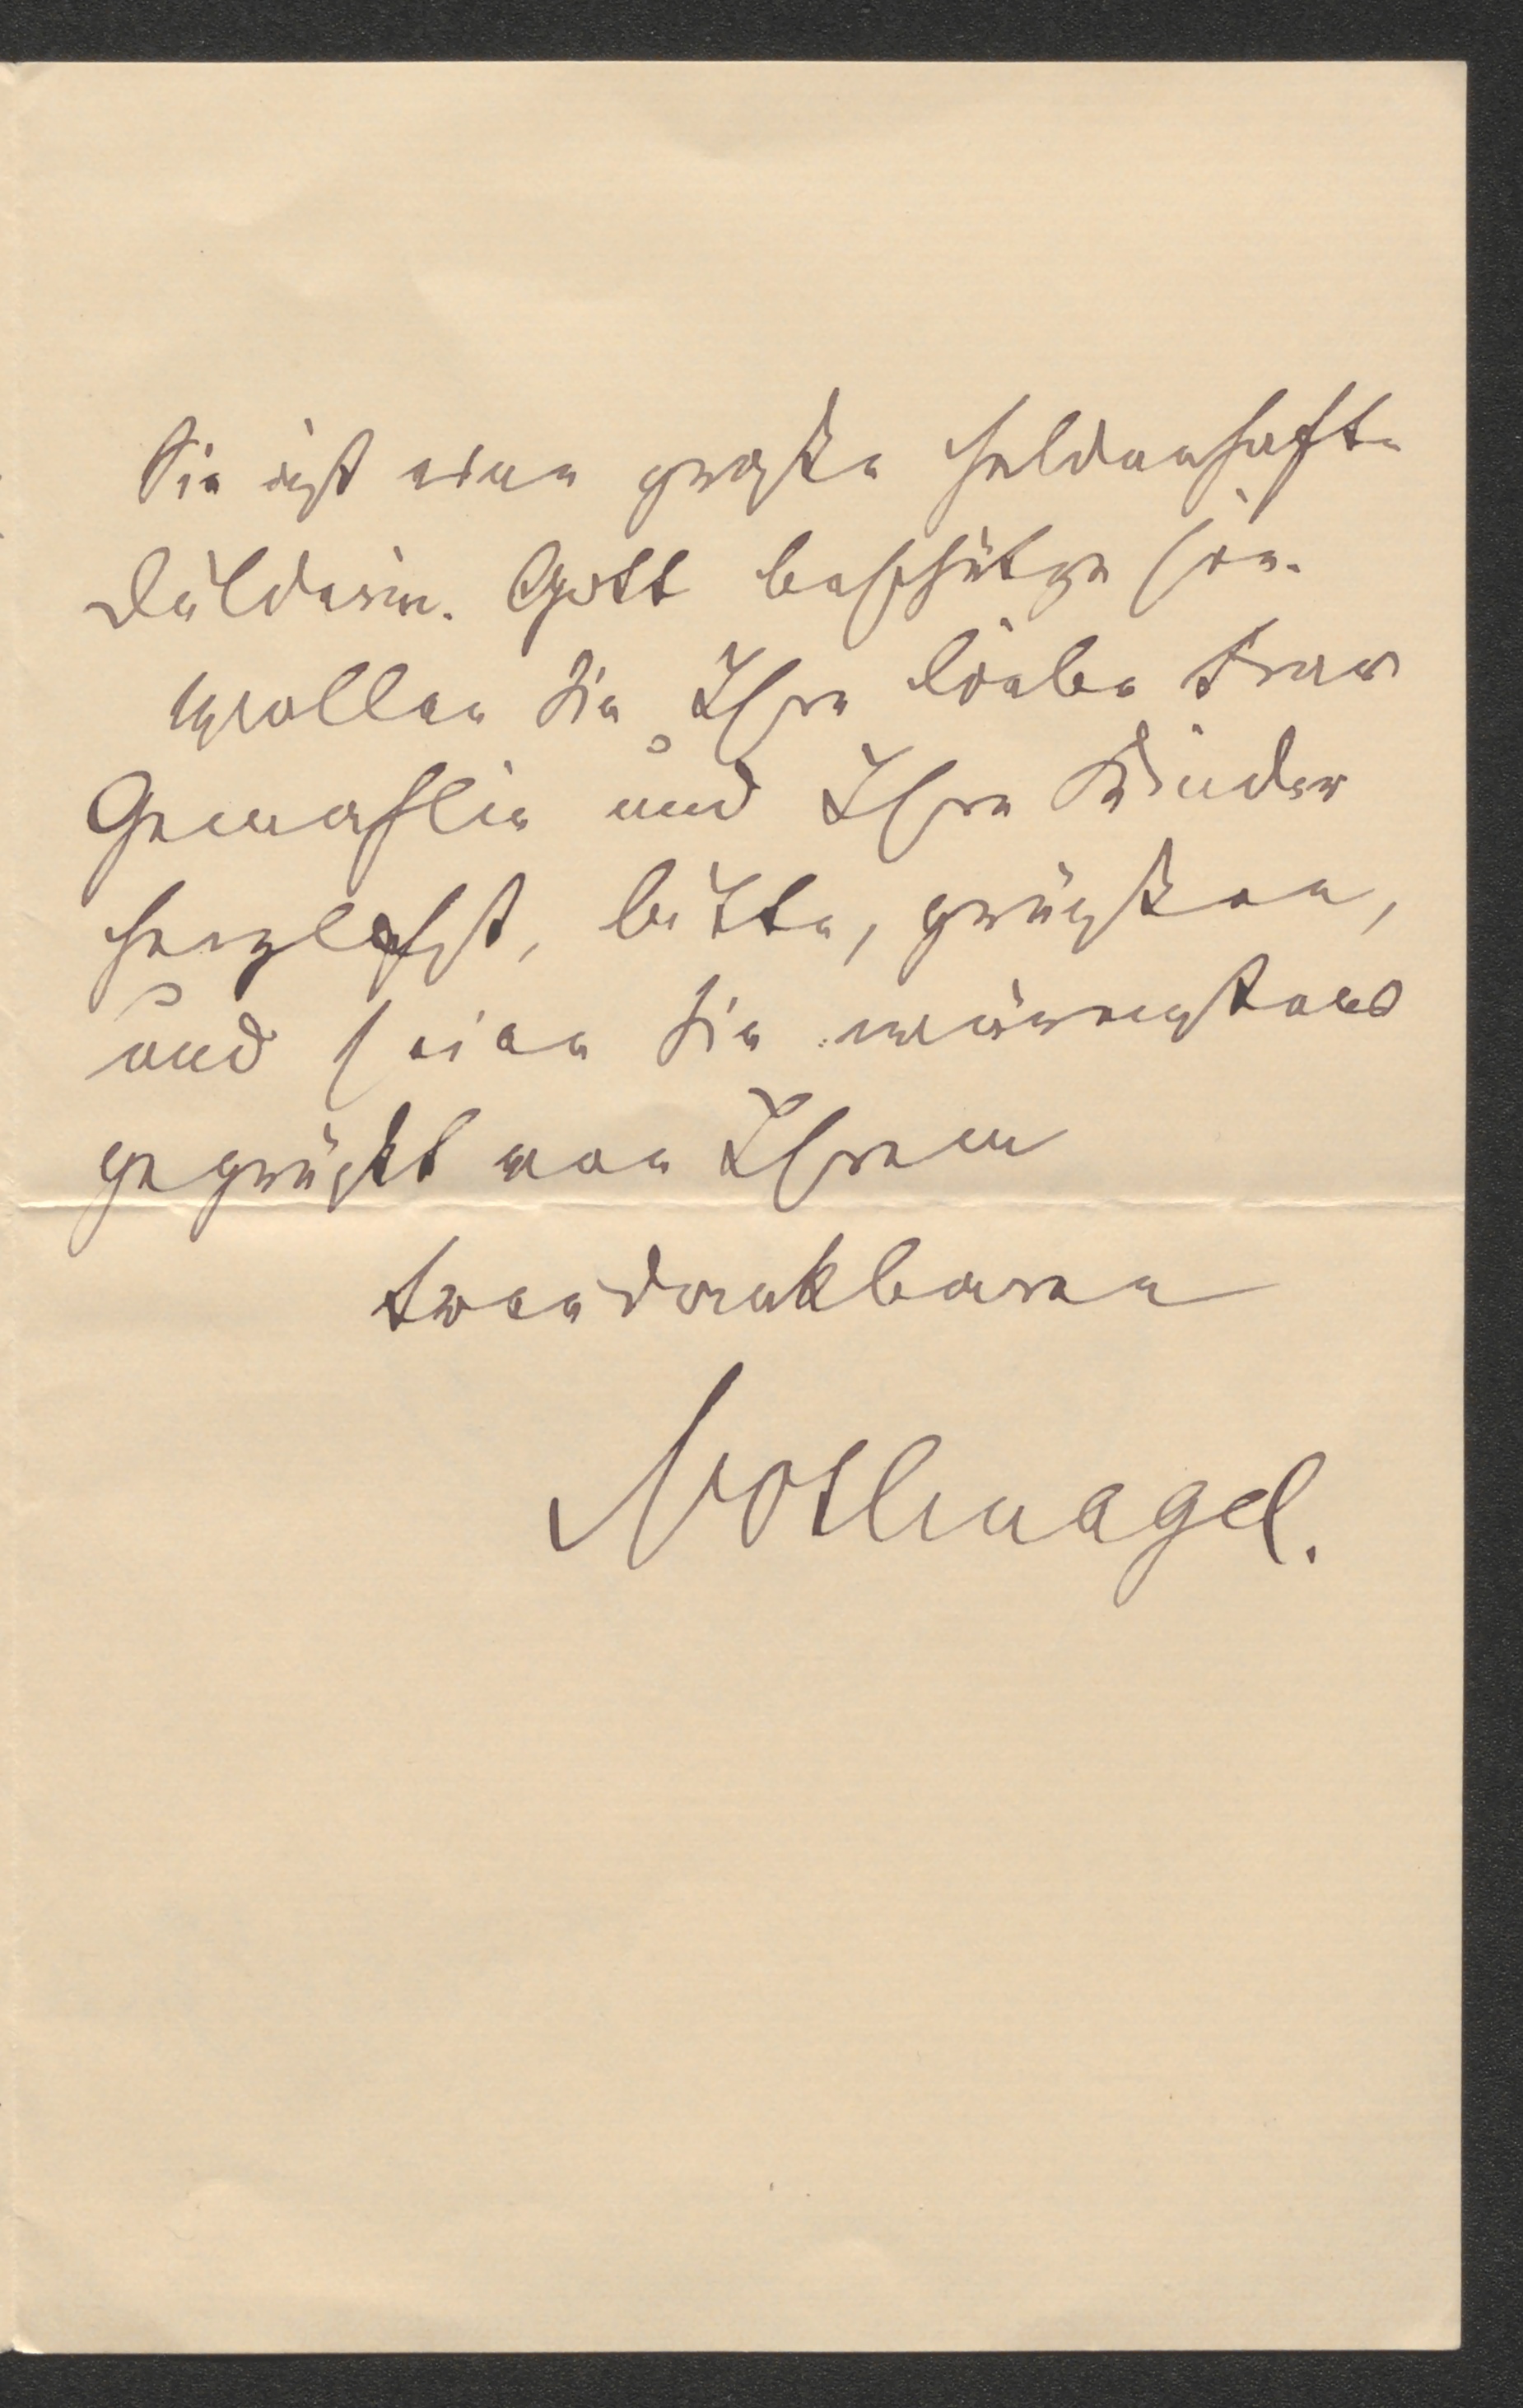 Sie ist eine große heldenhafte
Dulderin. Gott beschütze sie.
Wollen Sie Ihre liebe Frau
Gemahlin und Ihre Kinder
herzlichst, bitte, grüßen,
und seien Sie wärmstens
gegrüßt von Ihrem
treudankbaren
Nothnagel.